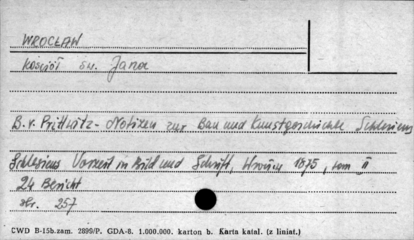 WROCŁAW
Kościół św. Jana
B. v. Prittwitz - Notizen zur Bau und Kunstgeschichte Schlesiens
Schlesiens Vorzeit in Bild und Schrift, 1875, tom II
24 Bericht
str. 257
CWD B-15b.zam. 2899/P. GDA-8. 1.000.000. karton b. Karta katal. (z liniat.)